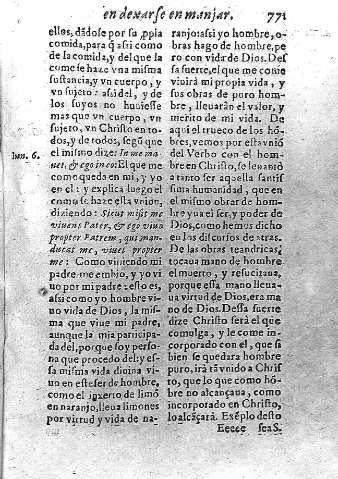 en dexarse en manjar. 771
ellos, dãdose por su ,ppia
comida, para q̃ assi como
de la comida, y del que la
come se haze vna misma
sustancia, y vn cuerpo, y
vn sujeto: assi del, y de
los suyos no huuiesse
mas que vn cuerpo, vn
sujeto, vn Christo en to-
dos, y de todos, segũ que
Ioan. 6.
el mismo dize: In me ma-
net, & ego in eo: El que me
come queda en mi, y yo
en el: y explica luego el
como se haze esta vnion,
diziendo: Sicut misit me
viuens Pater, & ego viuo
propter Patrem, qui man-
ducat me, viuet propter
me: Como viuiendo mi
padre me embio, y yo vi
uo por mi padre: esto es,
assi como yo hombre vi-
uo vida de Dios, la mis-
ma que viue mi padre,
aunque la mia participa-
da del, porque soy perso-
na que procedo del: y es-
sa misma vida diuina vi-
uo en este ser de hombre,
como el inxerto de limõ
en naranjo, lleua limones
por virtud y vida de na-
ranjo: assi yo hombre, o-
bras hago de hombre, pe
ro con vida de Dios. Des
sa suerte, el que me come
viuirà mi propia vida, y
sus obras de puro hom-
bre, lleuarán el valor, y
merito de mi vida. De
aqui el trueco de los hõ-
bres, vemos por esta vniõ
del Verbo con el hom-
bre en Christo, se leuantò
a tanto ser aquella santis
sima humanidad, que en
el mismo obrar de hom-
bre yua el ser, y poder de
Dios, como hemos dicho
en los discursos de atras.
De las obras teandricas,
tocaua mano de hombre
el muerto, y resucitaua,
porque essa mano lleua-
ua virtud de Dios, era ma
no de Dios. Dessa suerte
dize Christo será el que
comulga, y le come in-
corporado con el, que si
bien se quedara hombre
puro, irá tã vnido a Christo
que lo que como hõ-
bre no alcançaua, como
incorporado en Christo,
lo alcãçarà. Exẽplo desto
Eeeee sea S.